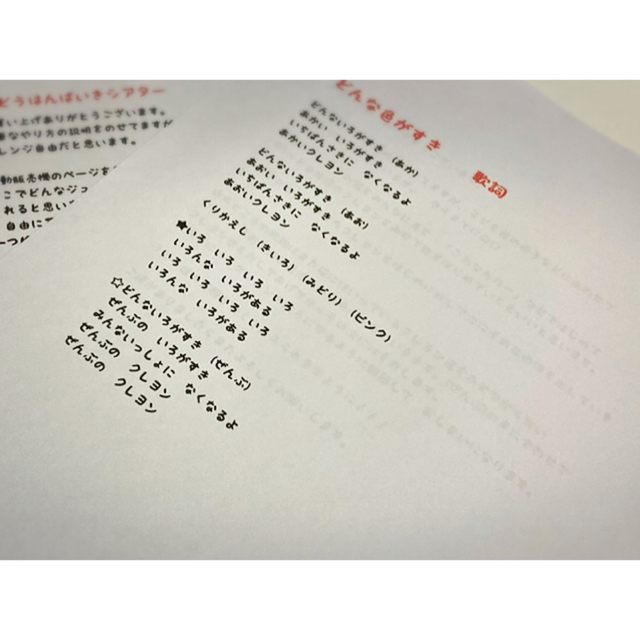 どうはんばいきシアター
い上げありがとうございます。
なやり方の説明をのせてますが
レンジ自由だと思います。
動販売機のページを
こでどんなジュ
れると思い
自由にて
どんな色がすき 歌詞
どんないろがすき (あか)
あかい いろがすき
いちばんさきに なくなるよ
あかいクレヨン
どんないろがすき (あお)
あおい いろがすき
いちばんさきに なくなるよ
あおいクレヨン
くりかえし (きいろ) (みどり) (ピンク)
★いろ いろ いろ いろ
いろんな いろがある
いろ いろ いろ いろ
いろんな いろがある
☆どんないろがすき (ぜんぶ)
ぜんぶの いろがすき
みんないっしょに なくなるよ
ぜんぶの クレヨン
ぜんぶの クレヨン